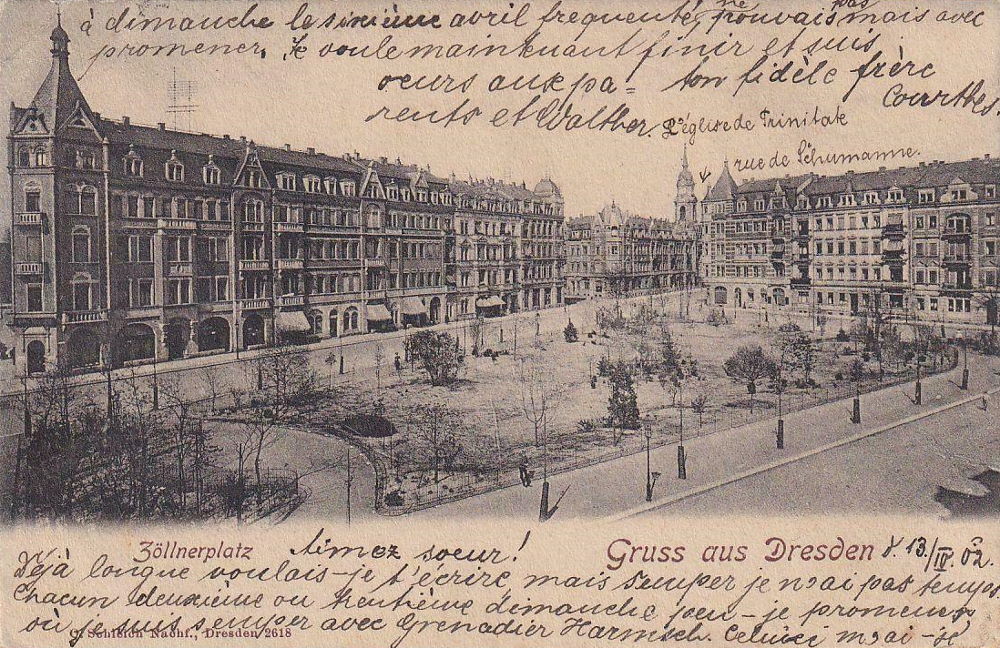 à dimanche le sixième avril frequenté, ne trouvais pas mais avec
promener. Je voule maintenant finir et suis
oeurs aux pa= ton fidèle frère
rents et Walther. Courthes.
L'églisede Trinitate
rue de Schumanne.
Zöllnerplatz
Aimez soeur!
Gruss aus Dresden
13./IV. 02.
Déjà longue voulais-je t'écrire, mais semper je n'ai pas temps.
Chacun deuxième ou dimanche peu-je promener,
où je suis semper avec Grenadier Harmisch. Celuici m'ai-je
C. Schleich Nachf., Dresden 2618